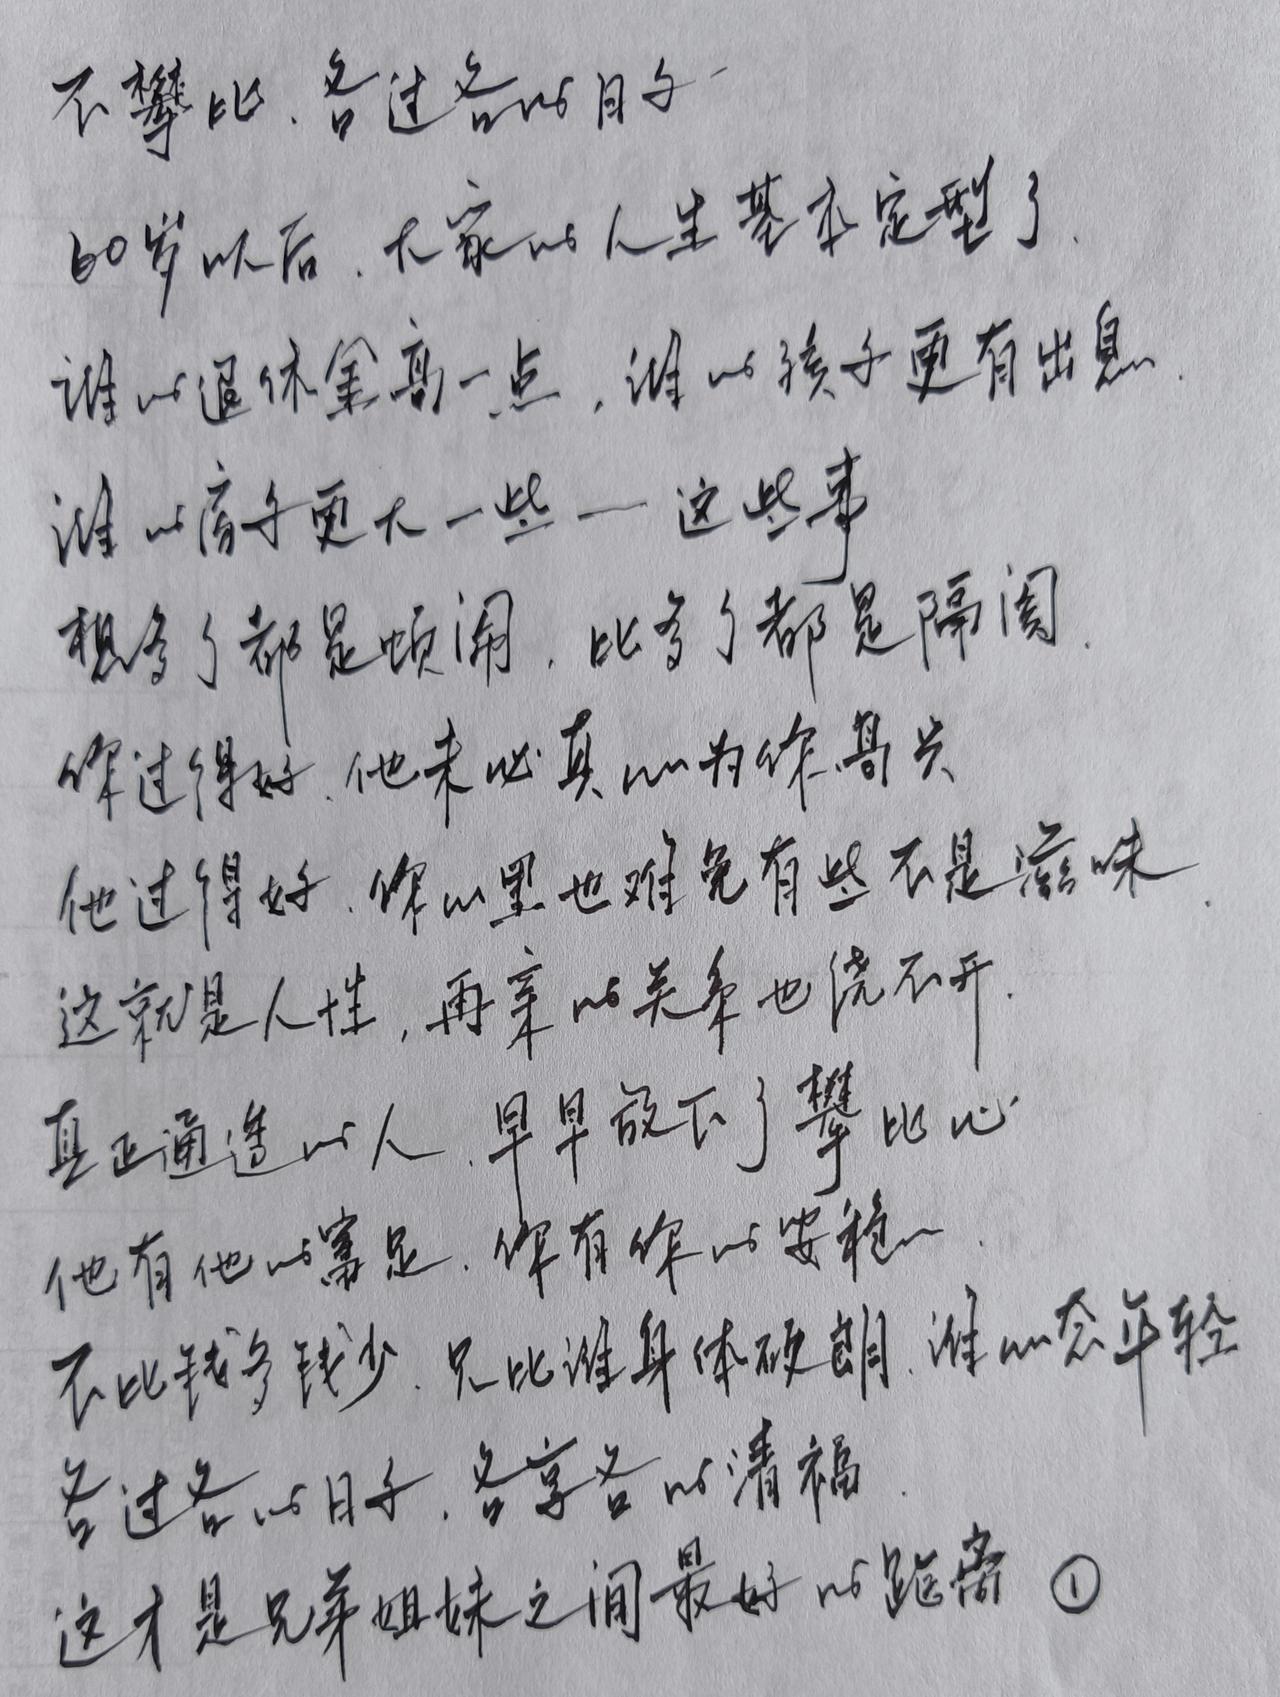 不攀比、各过各的日子
60岁以后、大家的人生基本定型了、
谁的退休金高一点，谁的孩子更有出息、
谁的房子更大一些—这些事
想多了都是烦闹、比多了都是隔阂、
你过得好、他未必真心为你高兴
他过得好、你心里也难免有些不是滋味、
这就是人性，再亲的关系也绕不开、
真正通透的人、早早放下了攀比心
他有他的富足、你有你的安稳、
不比钱多钱少、只比谁身体硬朗、谁心态年轻
各过各的日子、各享各的清福、
这才是兄弟姐妹之间最好的距离 ①